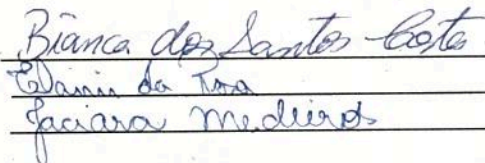 Bianca dos Santos Costa
da
Jaciara Medeiros